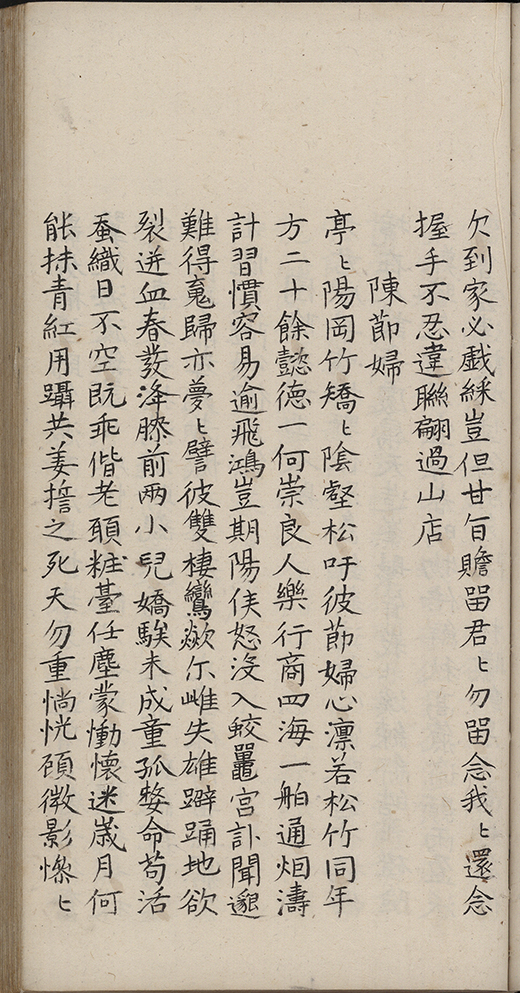 欠到家必戲綵豈但甘旨贍留君〻勿留念我〻還念
握手不忍違聯翩過山店
陳莭婦
亭〻陽岡竹矯〻陰壑松吁彼莭婦心凛若松竹同年
方二十餘懿德一何崇良人樂行商四海一舶通烟濤
計習慣容易逾飛鴻豈期陽侯怒沒入蛟鼉宮訃聞邈
難得寃歸亦夢〻譬彼雙棲鸞歘尔雌失雄躃踊地欲
裂迸血春發洚膝前两小兒嬌騃未成童孤嫠命苟活
蚕織日不空既乖偕老願粧臺任塵蒙慟懷迷歲月何
能抹青紅用躡共姜誓之死天勿重惝恍顧微影慘〻